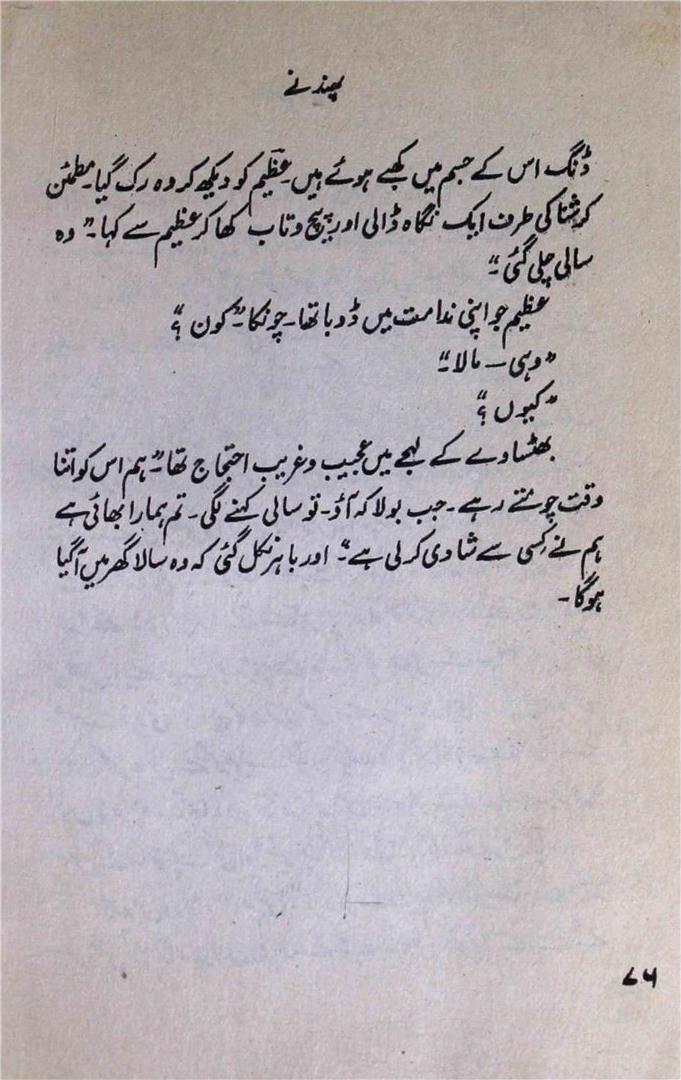 پھندنے
ڈنگ اس کے جسم میں کھبے ہوئے ہیں۔ عظیم کو دیکھ کر وہ رک گیا۔ مطمئن
کرشنا کی طرف ایک نگاہ ڈالی اور پیچ و تاب کھا کر عظیم سے کہا۔ "وہ
سالی چلی گئی۔"
عظیم جو اپنی ندامت میں ڈوبا تھا۔ چونکا۔ "کون؟"
"وہی — مالا۔"
"کیوں؟"
بھٹساوے کے لہجے میں عجیب و غریب احتجاج تھا۔ "ہم اس کو اتنا
وقت چومتے رہے۔ جب بولا کہ آؤ۔ تو سالی کہنے لگی۔ تم ہمارا بھائی ہے
ہم نے کسی سے شادی کر لی ہے۔" اور باہر نکل گئی کہ وہ سالا گھر میں آ گیا
ہوگا۔